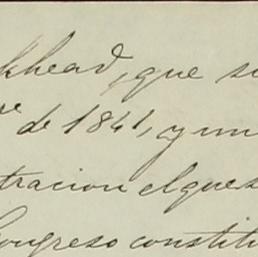 khead, que su
re de 1841, y un
tracion el que s
Congreso constitu